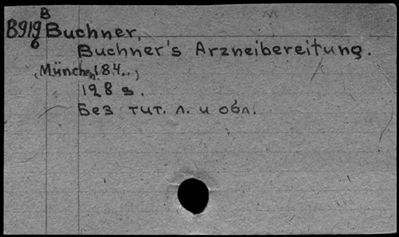 B
B919 Buchner,
б
Buchner's Arzneibereitung.
(München, 184..)
128 s.
Без тит. л. и обл.